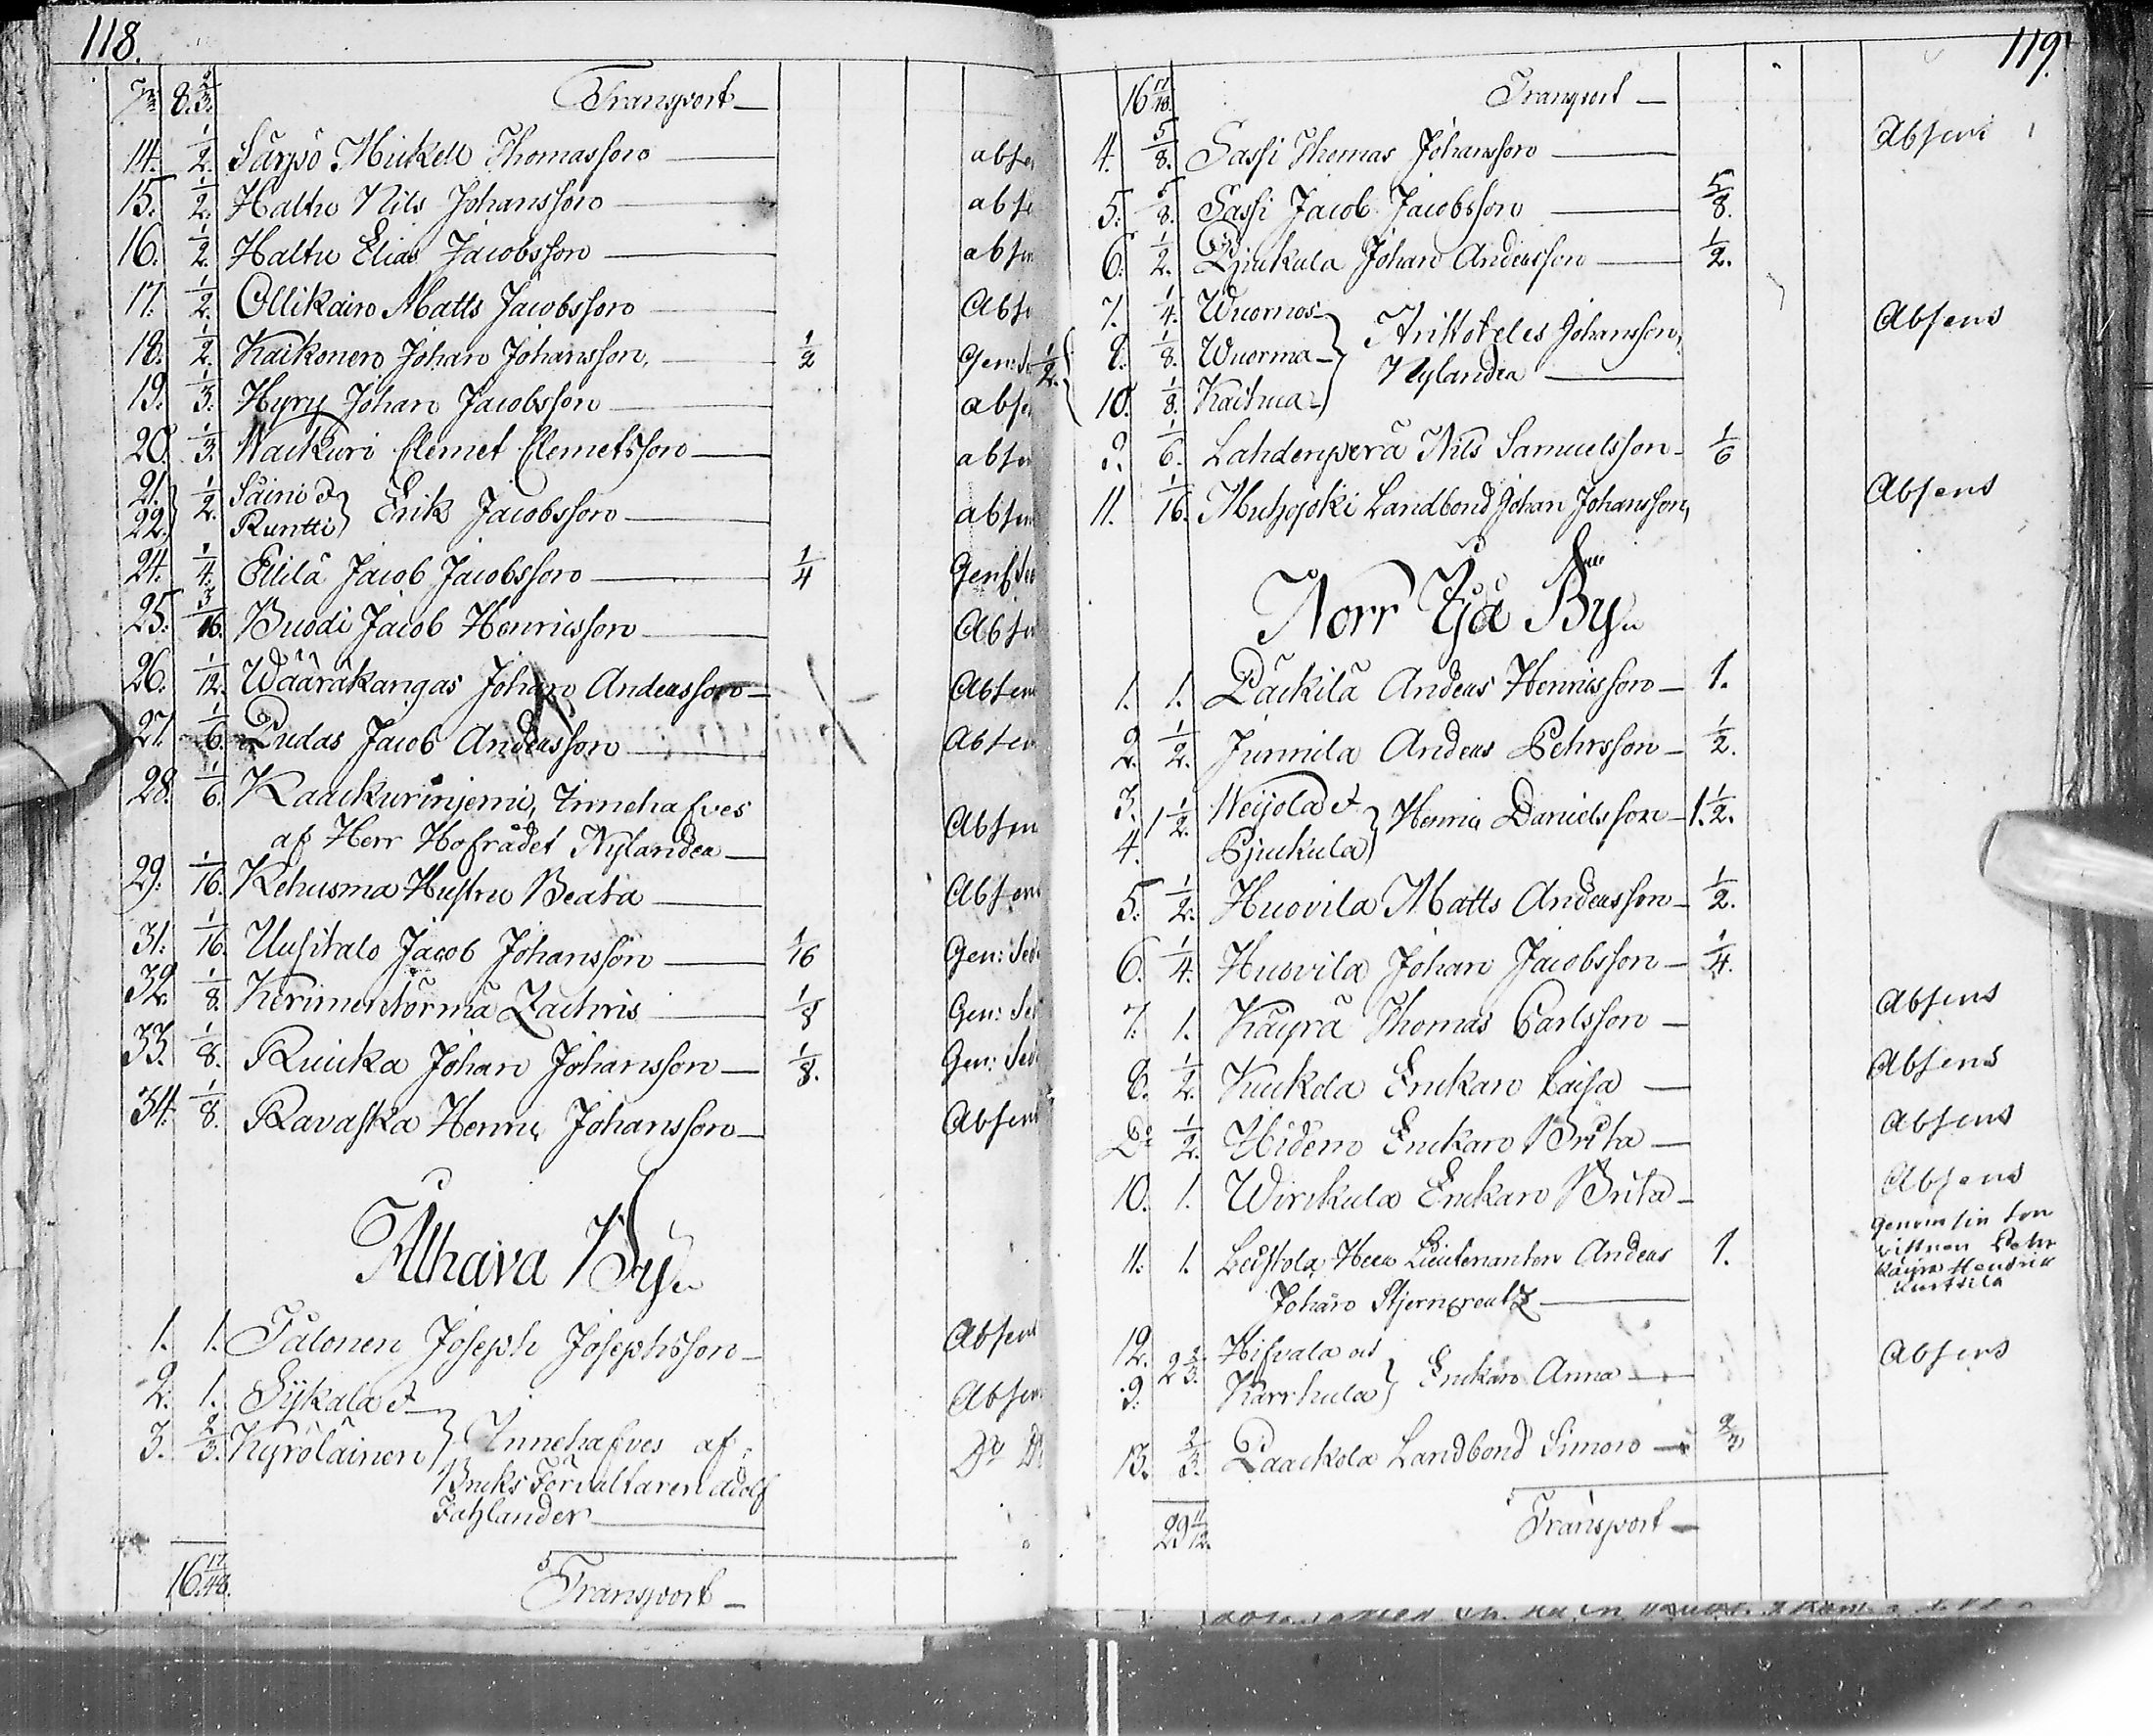 118.
8. 2/3. Transport
14. 1/2. Särpö Mickell Thomasson abse
15. 1/2. Haltu Nils Johansson abse
16. 1/2. Haltu Elias Jacobsson absen
17. 1/2. Ollikain Matts Jacobsson Abse
18. 1/2. Kaikonen Johan Johansson, 1/2 Gen: Se
19. 1/3. Hyry Johan Jacobsson abse
20. 1/3. Waikuri Clemet Clemetsson absen
21. 1/2. Säini et
22. Runtti } Erik Jacobsson absen
24. 1/4. Eililä Jacob Jacobsson 1/4 Gen: Se
25. 3/16. Buodi Jacob Henricsson Absen
26. 1/12. Wääräkangas Johan Andersson Absen
27. 1/6. Pudas Jacob Andersson Absen
28. 1/6. Kaackurinjemi, Innehafves
af Herr Hofrådet Nylander Absen
29. 1/16. Kehusma Hustru Beata Absen
31. 1/16. Uusitalo Jacob Johansson 1/16 Gen: Sed
32. 1/8. Kerimentörmä Zachris 1/8 Gen: Sed
33. 1/8. Ruicka Johan Johansson 1/8. Gen: Sed
34. 1/8. Ravaska Henric Johansson Absen
Alhava By
1. 1. Talonen Joseph Josephsson Absen
2. 1. Sykala et Absen
3. 2/3. Kyröläinen } Innehafves af
Bruks Förvaltaren Adolf
Fahlander
16. 17/48. Transport
119.
16 17/48. Transport
4. 5/8. Sassi Thomas Johansson Absens
5. 5/8. Sassi Jacob Jacobsson 5/8.
6. 1/2. Pjuckula Johan Andersson 1/2.
7. 1/4. Wuornos
8. 1/8. Wuorma } Aristoteles Johansson Absens
10. 1/8. Kaihua Nylander
1/2.
9. 1/6. Lahdenperä Nils Samuelsson 1/6
11. 1/16. Muhojoki Landbond Johan Johansson, Absens
Norr Ijå By
1. 1. Päckilä Anders Henricsson 1.
2. 1/2. Junnila Anders Pehrsson 1/2.
3. 1 1/2. Weijola et
4. Pjuckula } Henric Danielsson 1. 1/2.
5. 1/2. Huovila Matts Andersson 1/2.
6. 1/4. Huovila Johan Jacobsson 1/4.
7. 1. Käyrä Thomas Carlsson Absens
8. 1/2. Kuckola Enckan Caisa Absens
Do 1/2. Hiden Enckan Brita Absens
10. 1. Wirckula Enckan Brita Absens
11. 1. Leistola Herr Lieutenanten Anders 1.
Johan Stjerncreutz
Genom sin
Käyrä Hendric
Kurttila
12. 2 2/3. Hifvala och
9. Karrhula } Enckan Anna Absens
13. 2/3. Paackola Landbond Simon 2/3
29 11/12. Transport